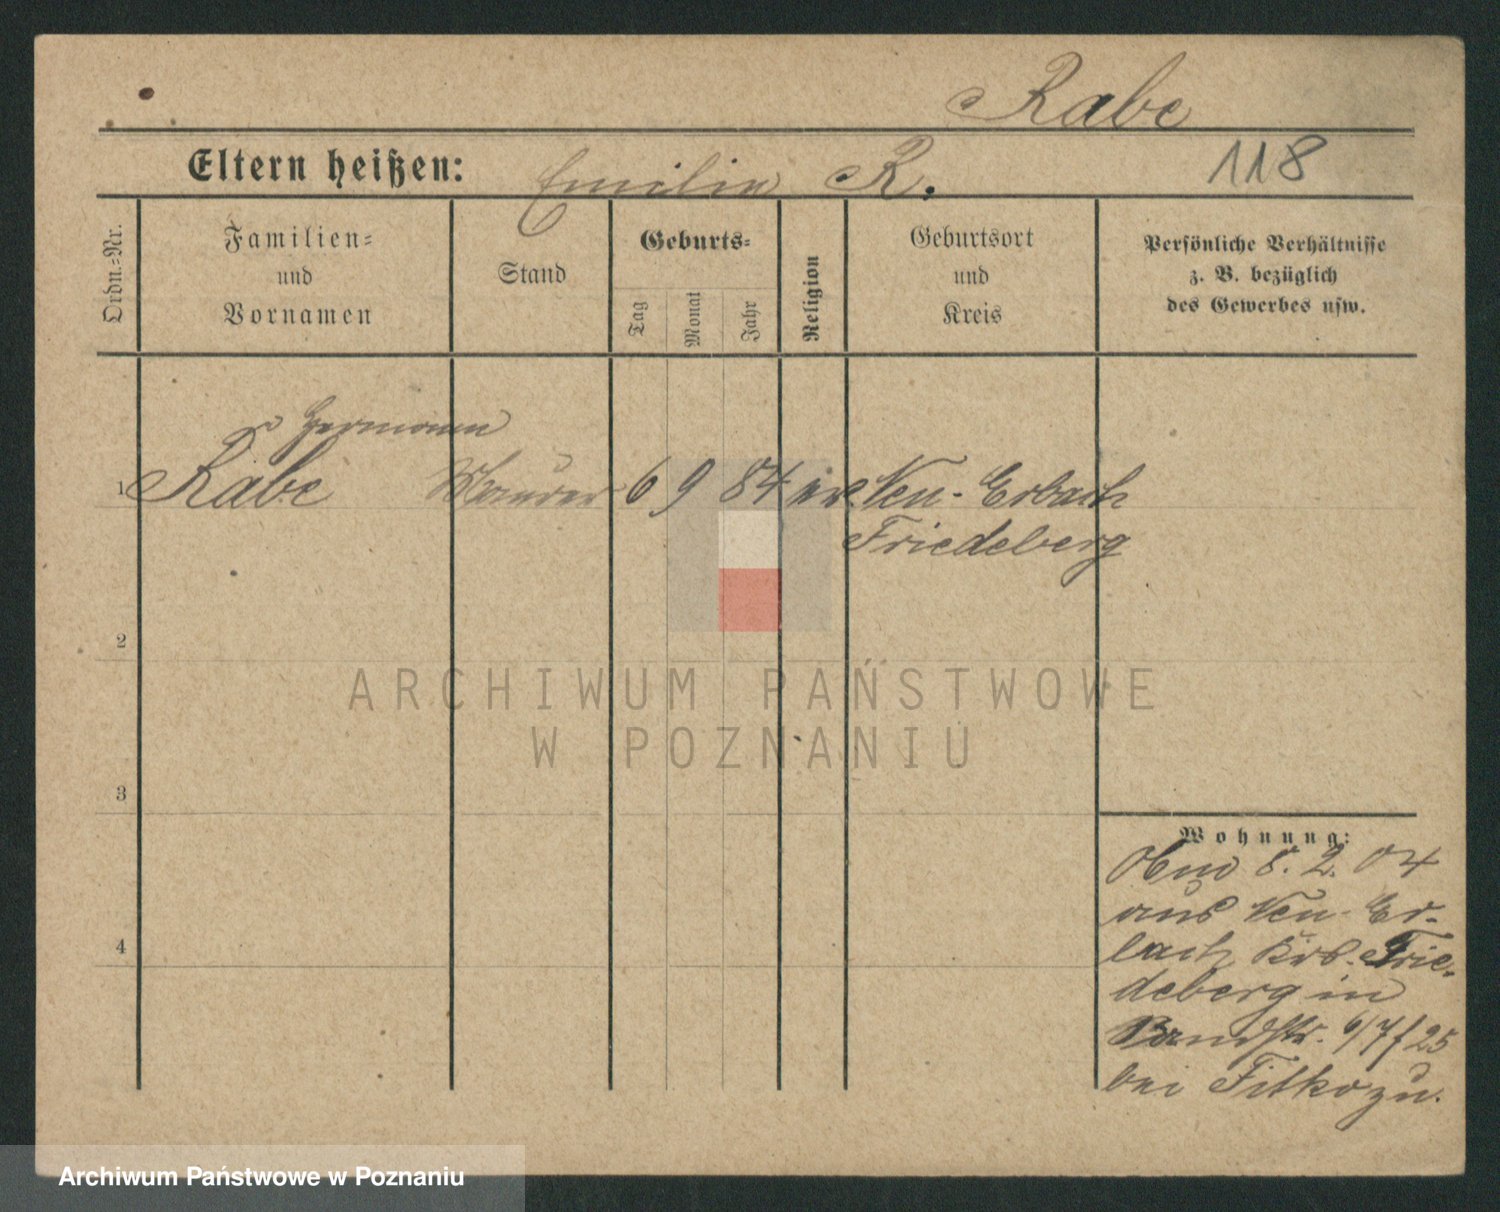 Rabe
Eltern heißen: Emilie R. 118
Ordn.-Nr.
Familien-
und
Vornamen
Stand
Geburts-
Tag
Monat
Jahr
Religion
Geburtsort
und
Kreis
Persönliche Verhältnisse
z. B. bezüglich
des Gewerbes usw.
Hermann
1 Rabe Maurer 6 9 84 ev. Neu-Erbach
Friedeberg
2
3
4
Wohnung:
8. 2. 04
aus Neu-Er-
bach Krs. Frie-
deberg in
6/7 f 25
bei zu.
ARCHIWUM PAŃSTWOWE
W POZNANIU
Archiwum Państwowe w Poznaniu